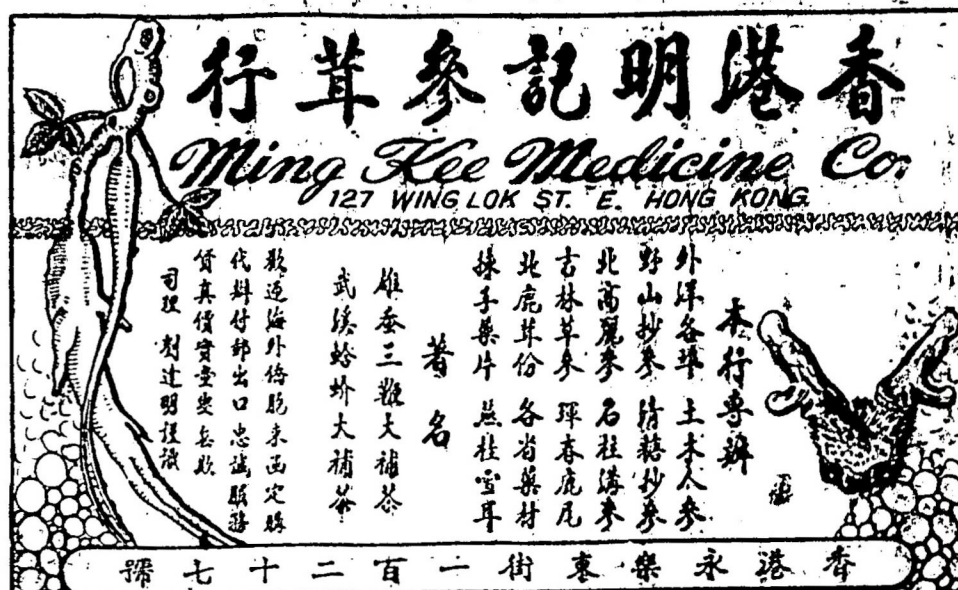 香港明記參茸行
Ming Kee Medicine Co.
127 WING LOK ST. E. HONG KONG
本行專辦
外洋各 土木人參
野山抄參 清糖抄參
北高麗參 石柱溝參
吉林草參 琿春鹿尾
北鹿茸份 各省藥材
揀手藥片 燕桂雪耳
著名
雄蚕三鞭大補茶
武溪蛤蚧大補茶
歡迎海外僑胞來函定購
代料付郵出口忠誠服務
貨真價實童叟無欺
司理 劉達明謹識
香港永樂東街一百二十七號